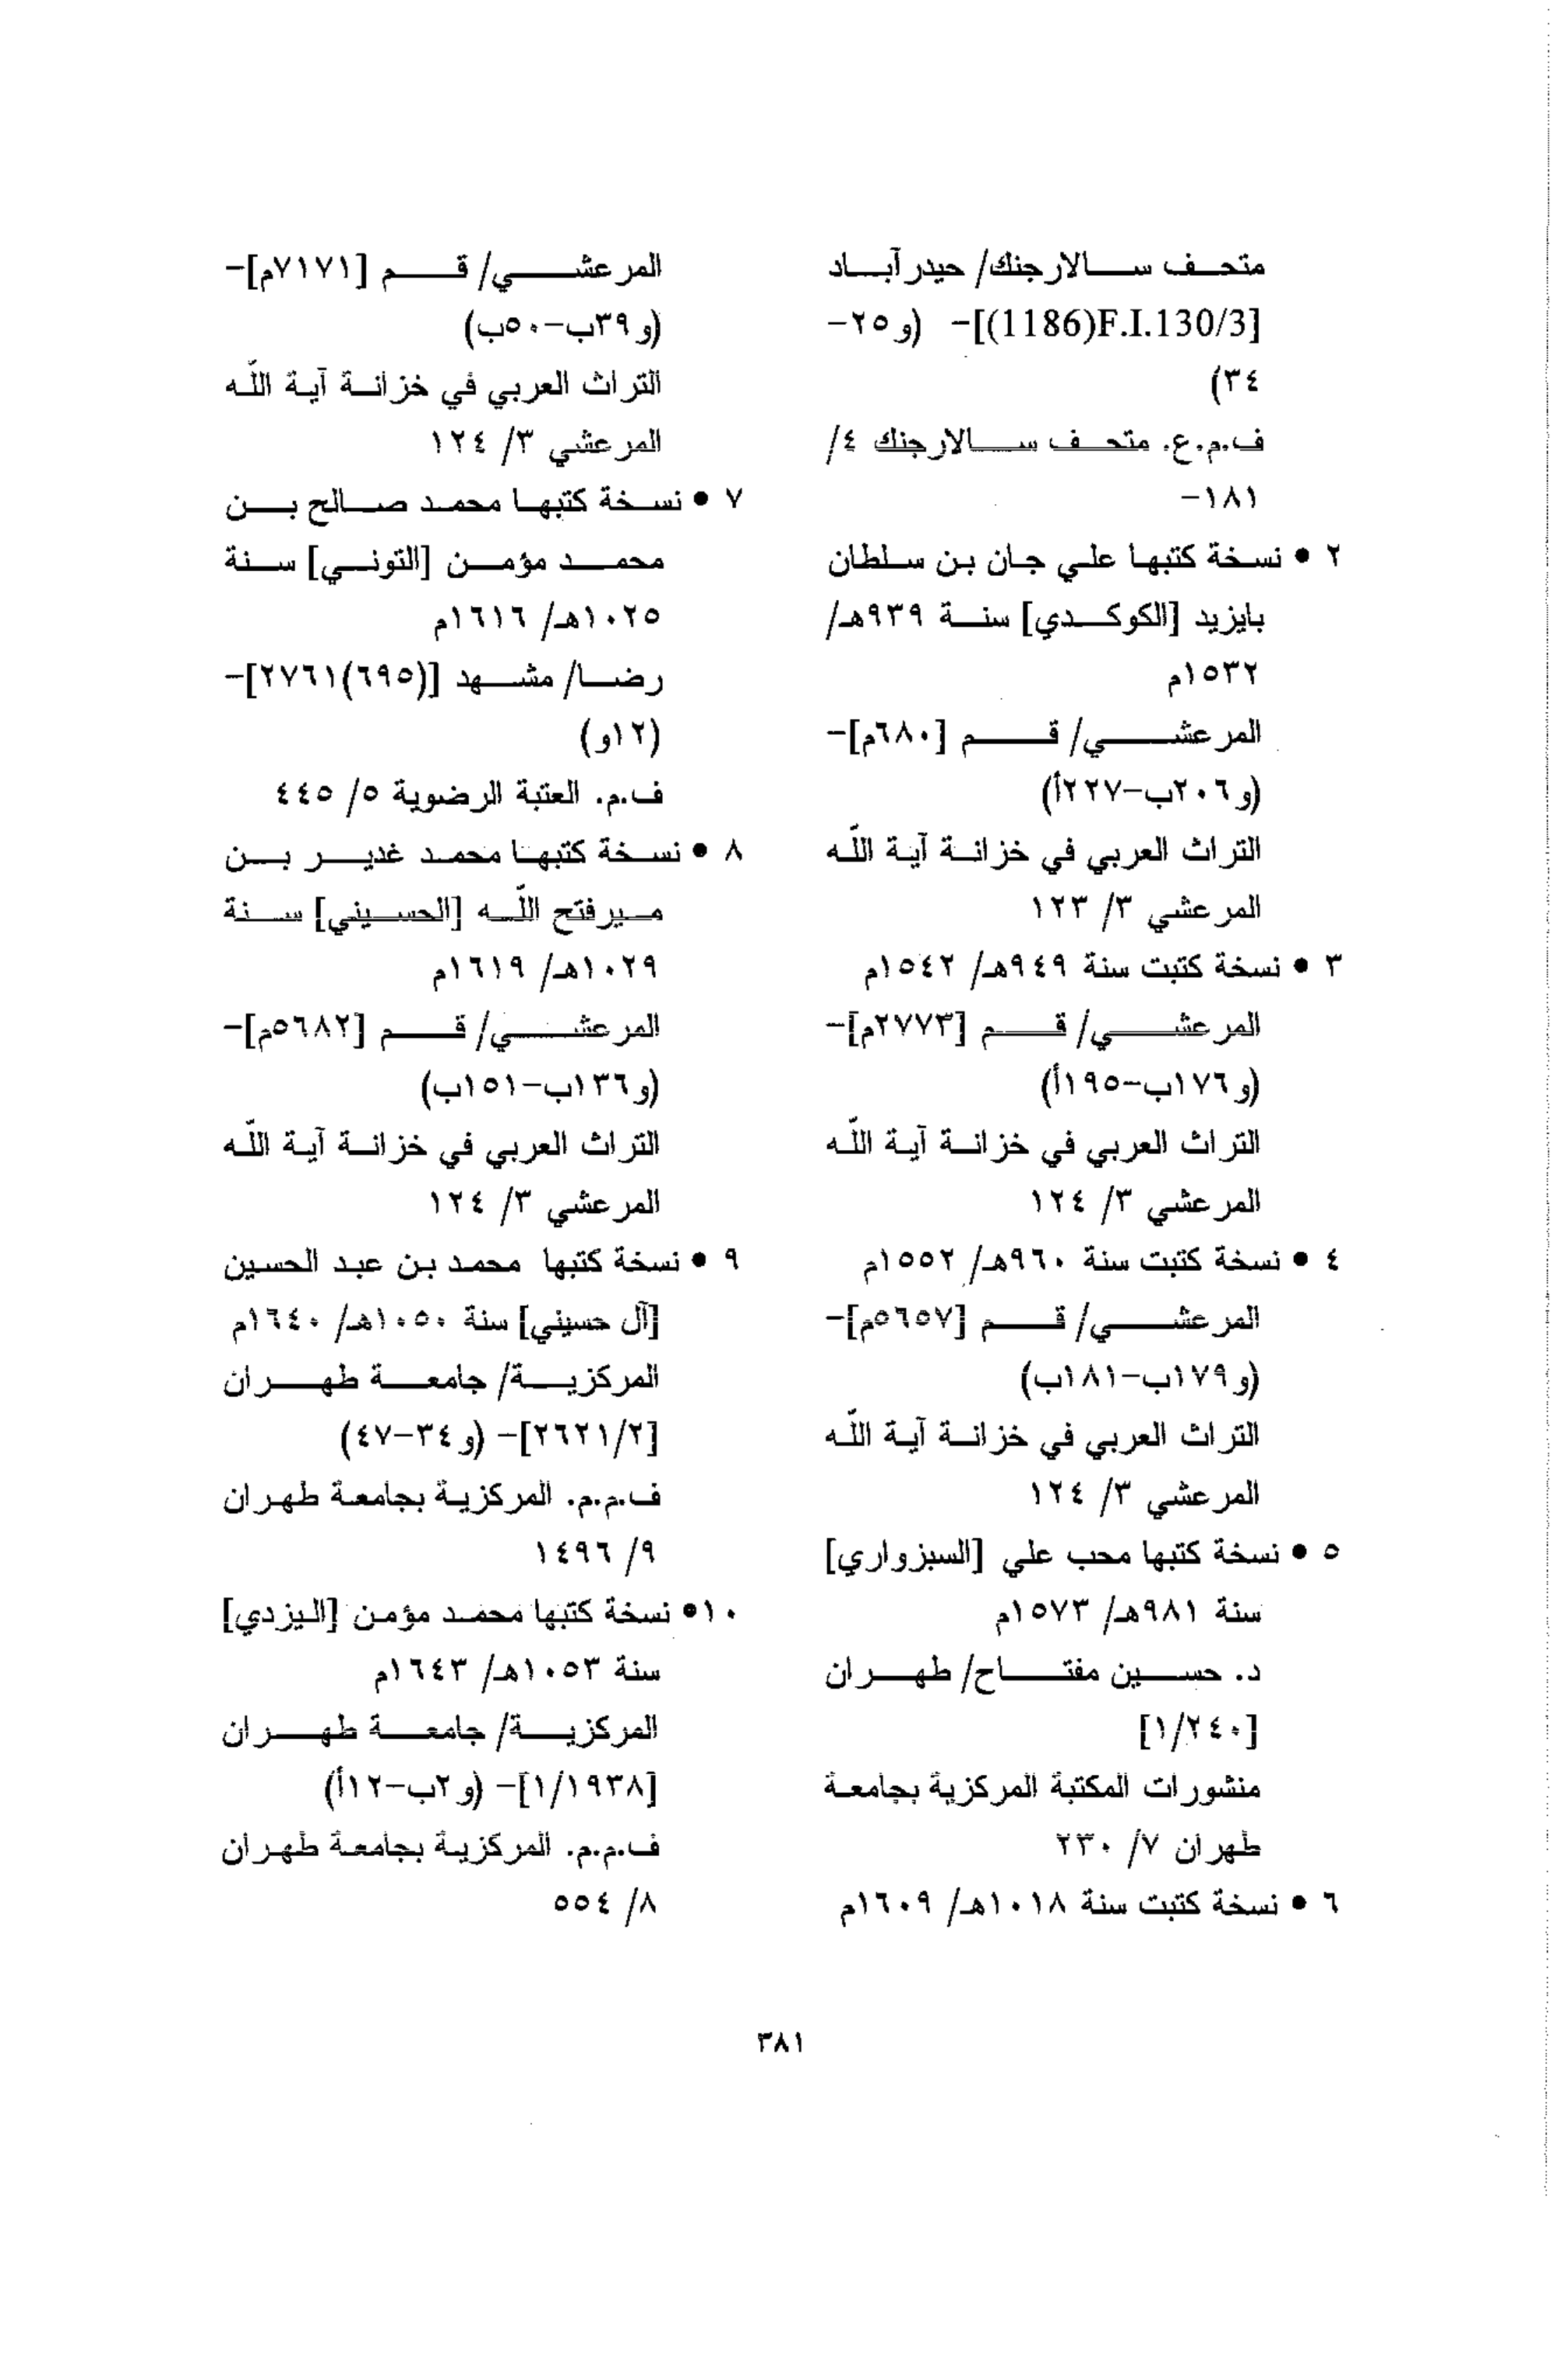 متحف سالارجنك/ حيدرآباد
[(1186)F.I.130/3]- (و٢٥-
٣٤)
ف.م.ع. متحف سالارجنك ٤/
١٨١-
٢ • نسخة كتبها علي جان بن سلطان
بايزيد [الكوكدي] سنة ٩٣٩هـ/
١٥٣٢م
المرعشي/ قم [٦٨٠م]-
(و٢٠٦ب-٢٢٧أ)
التراث العربي في خزانة آية اللّه
المرعشي ٣/ ١٢٣
٣ • نسخة كتبت سنة ٩٤٩هـ/ ١٥٤٢م
المرعشي/ قم [٢٧٧٣م]-
(و١٧٦ب-١٩٥أ)
التراث العربي في خزانة آية اللّه
المرعشي ٣/ ١٢٤
٤ • نسخة كتبت سنة ٩٦٠هـ/ ١٥٥٢م
المرعشي/ قم [٥٦٥٧م]-
(و١٧٩ب-١٨١ب)
التراث العربي في خزانة آية اللّه
المرعشي ٣/ ١٢٤
٥ • نسخة كتبها محب علي [السبزواري]
سنة ٩٨١هـ/ ١٥٧٣م
د. حسين مفتاح/ طهران
[١/٢٤٠]
منشورات المكتبة المركزية بجامعة
طهران ٧/ ٢٣٠
٦ • نسخة كتبت سنة ١٠١٨هـ/ ١٦٠٩م
المرعشي/ قم [٧١٧١م]-
(و٣٩ب-٥٠ب)
التراث العربي في خزانة آية اللّه
المرعشي ٣/ ١٢٤
٧ • نسخة كتبها محمد صالح بن
محمد مؤمن [التوني] سنة
١٠٢٥هـ/ ١٦١٦م
رضا/ مشهد [(٦٩٥)٢٧٦١]-
(١٢و)
ف.م. العتبة الرضوية ٥/ ٤٤٥
٨ • نسخة كتبها محمد غدير بن
ميرفتح اللّه [الحسيني] سنة
١٠٢٩هـ/ ١٦١٩م
المرعشي/ قم [٥٦٨٢م]-
(و١٣٦ب-١٥١ب)
التراث العربي في خزانة آية اللّه
المرعشي ٣/ ١٢٤
٩ • نسخة كتبها محمد بن عبد الحسين
[آل حسيني] سنة ١٠٥٠هـ/ ١٦٤٠م
المركزية/ جامعة طهران
[٢٦٢١/٢]- (و٣٤-٤٧)
ف.م.م. المركزية بجامعة طهران
٩/ ١٤٩٦
١٠• نسخة كتبها محمد مؤمن [اليزدي]
سنة ١٠٥٣هـ/ ١٦٤٣م
المركزية/ جامعة طهران
[١/١٩٣٨]- (و٢ب-١٢أ)
ف.م.م. المركزية بجامعة طهران
٨/ ٥٥٤
٣٨١